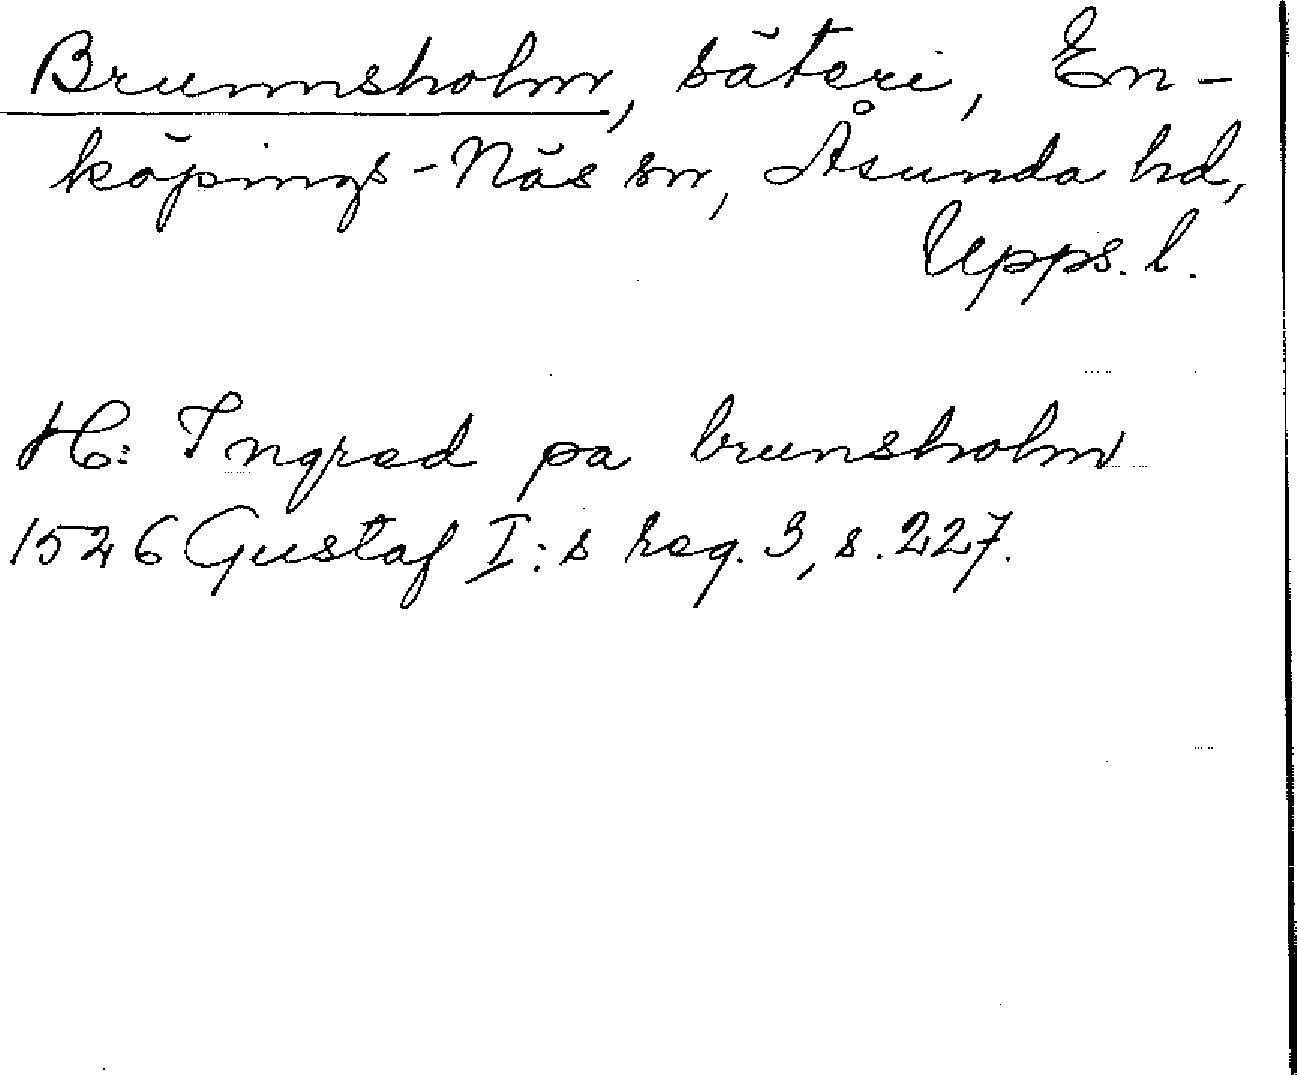 Brunnsholm, säteri, En-
köpings-Näs sn, Åsunda hd,
Upps. l.
H: Ingrad pa brunsholm
1526 Gustaf I:s reg. 3, s. 227.